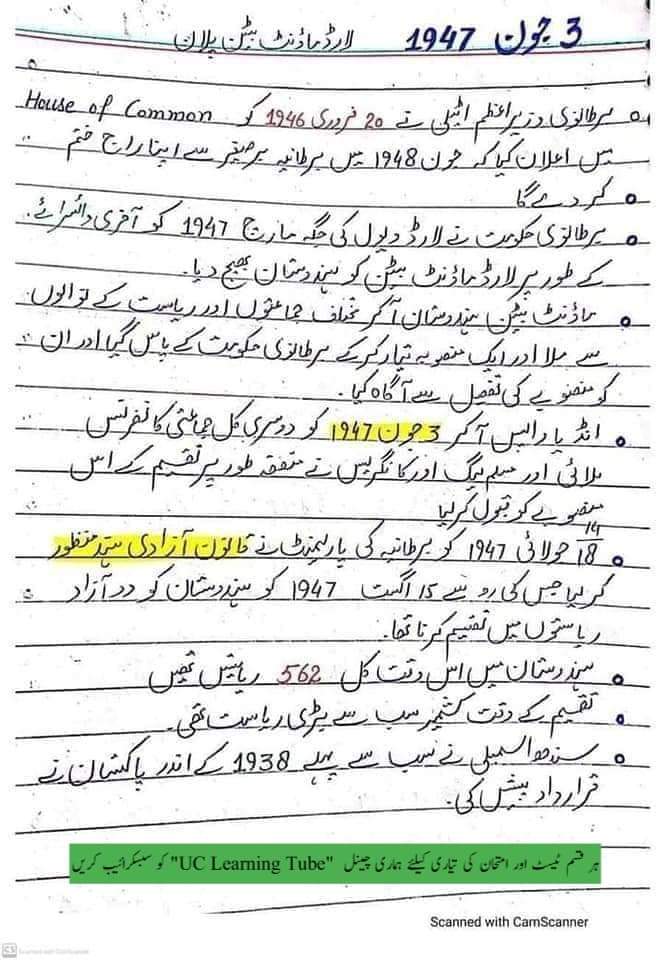 3 جون 1947 لارڈ ماؤنٹ بیٹن پلان
برطانوی وزیراعظم اٹیلی نے 20 فروری 1946 کو House of Common
میں اعلان کیا کہ جون 1948 میں برطانیہ برصغیر سے اپنا راج ختم
کر دے گا
برطانوی حکومت نے لارڈ ویول کی جگہ مارچ 1947 کو آخری وائسرائے
کے طور پر لارڈ ماؤنٹ بیٹن کو ہندوستان بھیج دیا۔
ماؤنٹ بیٹن ہندوستان آکر مختلف جماعتوں اور ریاست کے نوابوں
سے ملا اور ایک منصوبہ تیار کرکے برطانوی حکومت کے پاس گیا اور ان
کو منصوبے کی تفصیل سے آگاہ کیا۔
انڈیا واپس آکر 3 جون 1947 کو دوسری کل جماعتی کانفرنس
بلائی اور مسلم لیگ اور کانگریس نے متفقہ طور پر تقسیم کے اس
منصوبے کو قبول کر لیا
14
18 جولائی 1947 کو برطانیہ کی پارلیمنٹ نے قانون آزادی ہند منظور
کر لیا جس کی رو سے 15 اگست 1947 کو ہندوستان کو دو آزاد
ریاستوں میں تقسیم کرنا تھا۔
ہندوستان میں اس وقت کل 562 ریاستیں تھیں
تقسیم کے وقت کشمیر سب سے بڑی ریاست تھی۔
سندھ اسمبلی نے سب سے پہلے 1938 کے اندر پاکستان نے
قرارداد پیش کی۔
ہر قسم ٹیسٹ اور امتحان کی تیاری کیلئے ہماری چینل "UC Learning Tube" کو سبسکرائیب کریں
Scanned with CamScanner
CS Scanned with CamScanner